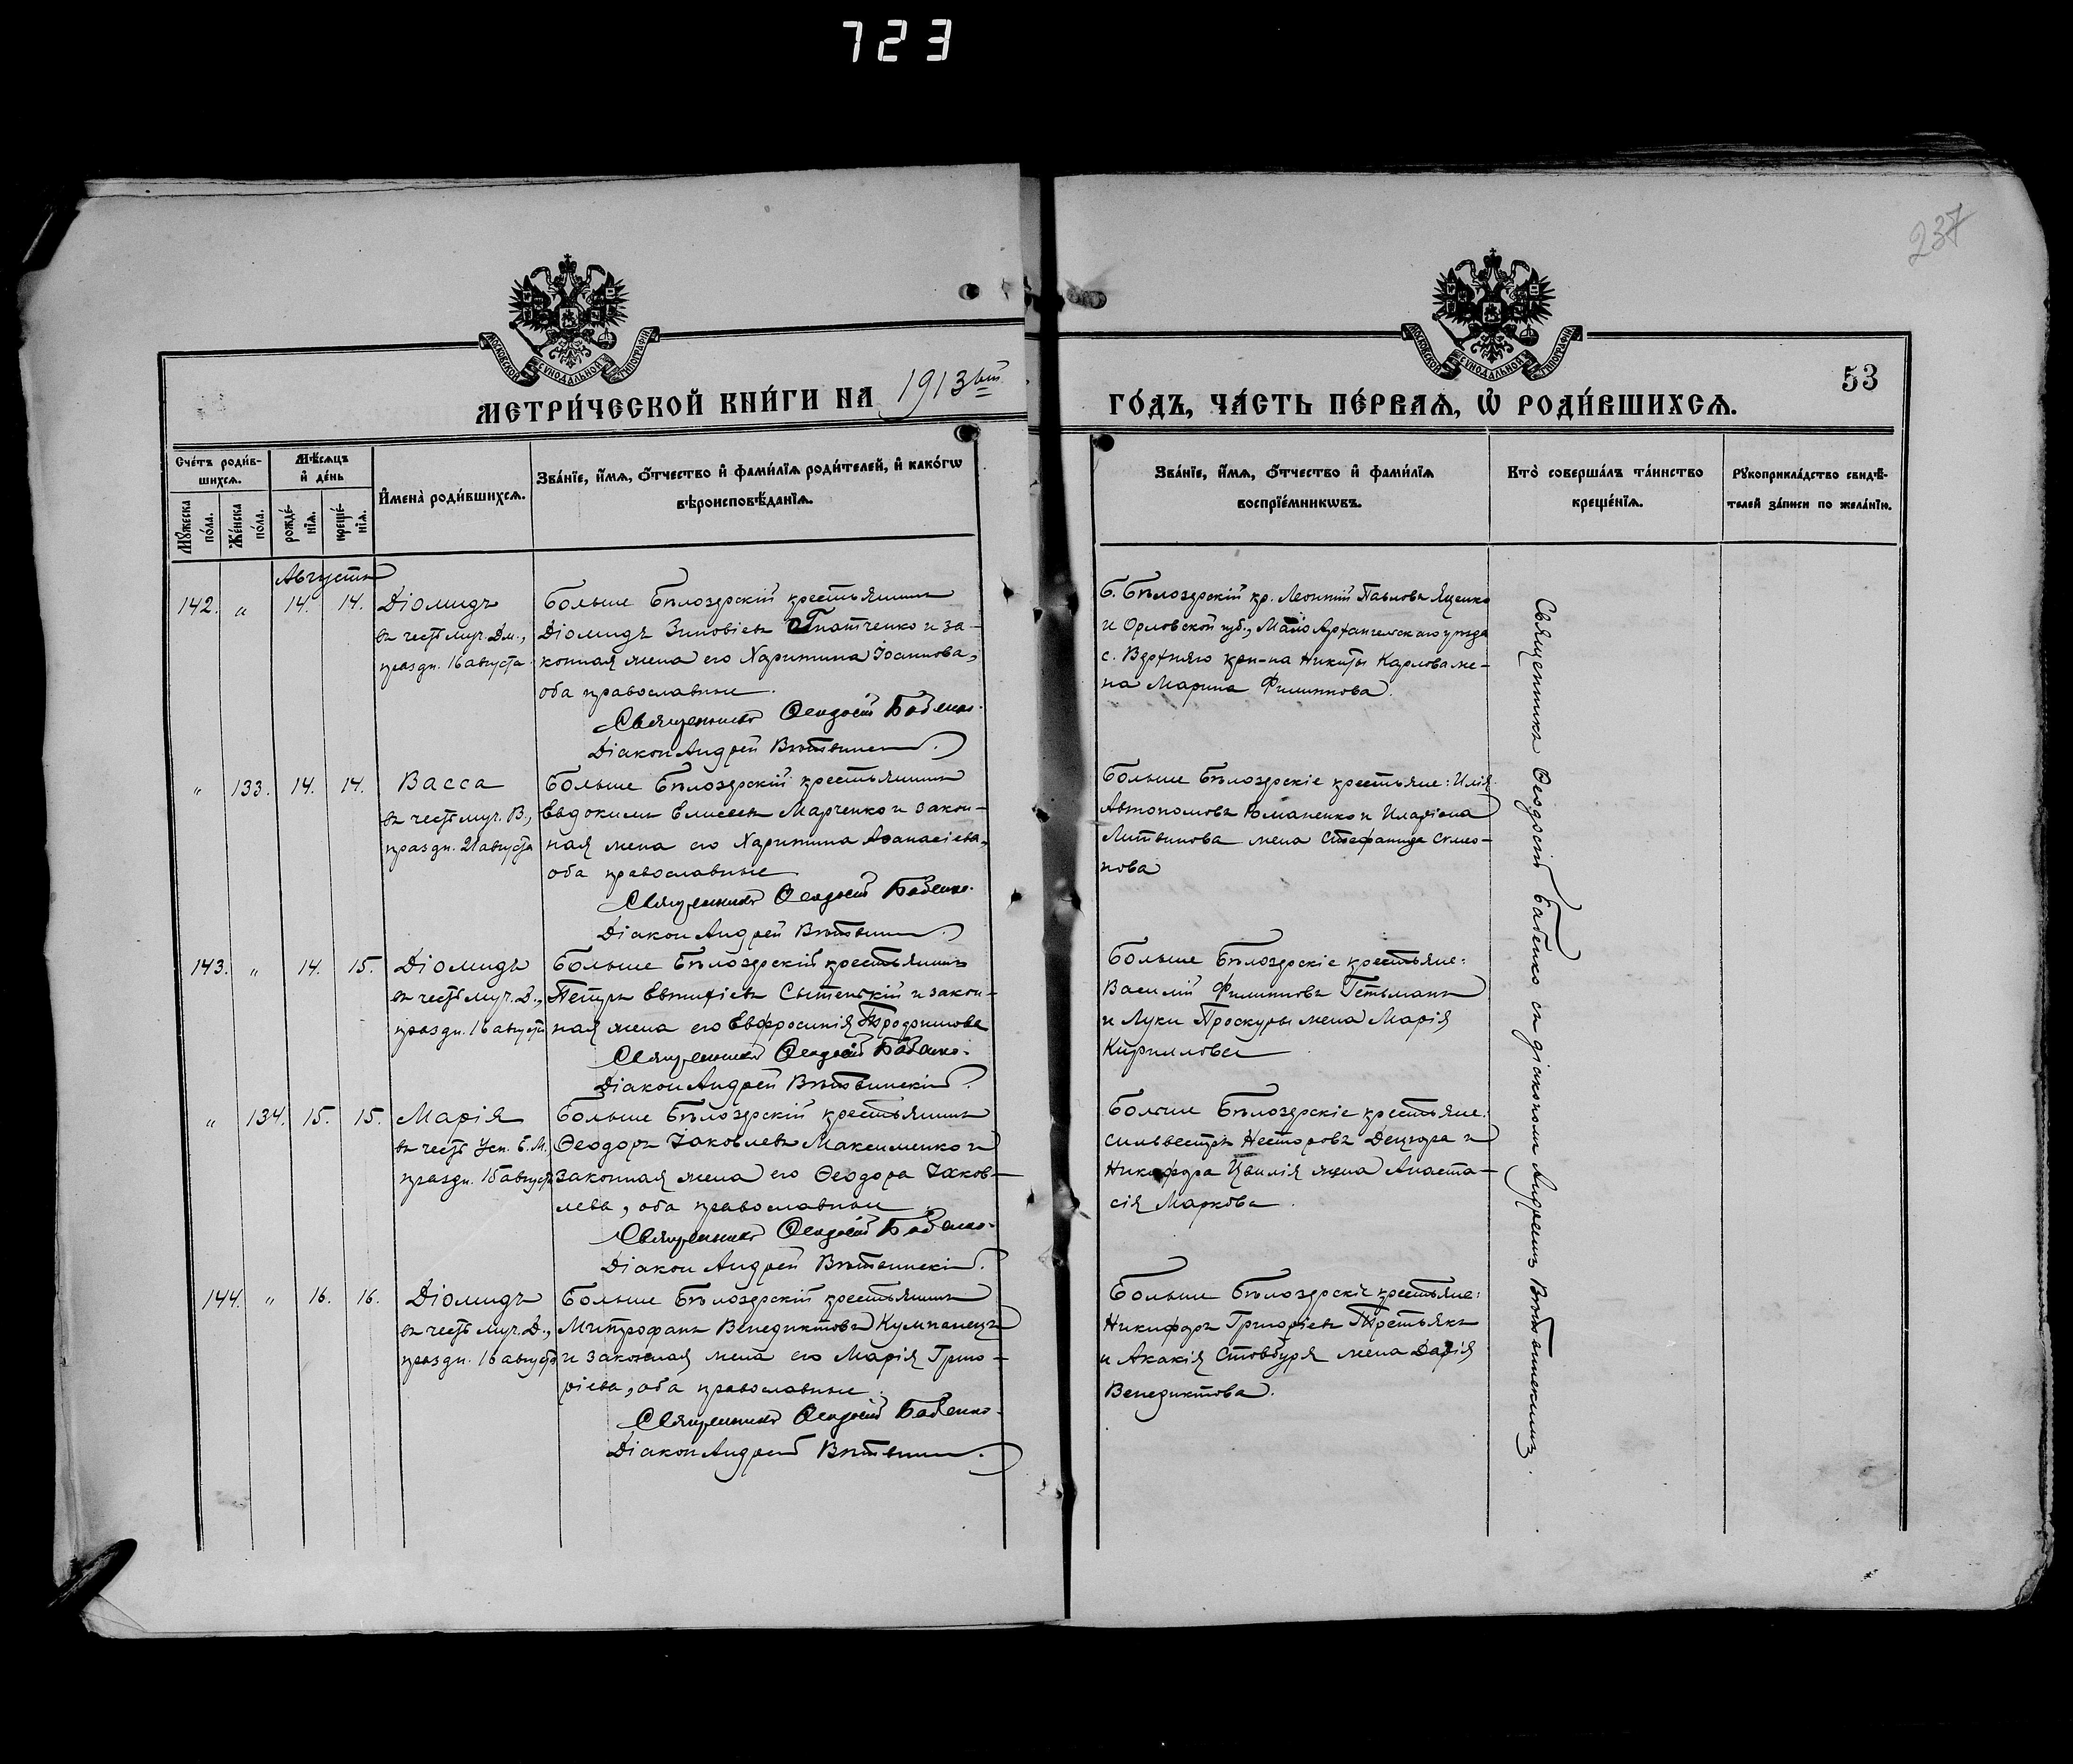 723
237
МОСКОВСКОЙ СѴНОДАЛЬНОЙ ТИПОГРАФІИ
МОСКОВСКОЙ СѴНОДАЛЬНОЙ ТИПОГРАФІИ
МЕТРИ́ЧЕСКОЙ КНИ́ГИ НА 1913ый
ГО́ДЪ, ЧА́СТЬ ПЕ́РВАѦ, Ѡ҆ РОДИ́ВШИХСѦ.
53
Сче́тъ роди́в-
шихсѧ.
Мꙋ́жеска по́ла.
Же́нска по́ла.
Мѣ́сѧцъ
и҆ де́нь
рожде́-нїѧ.
креще́-нїѧ.
И҆мена̀ роди́вшихсѧ.
Зва́нїе, и҆́мѧ, о҆́тчество и҆ фами́лїѧ роди́телей, и҆ како́гѡ
вѣроисповѣ́данїѧ.
Зва́нїе, и҆́мѧ, о҆́тчество и҆ фами́лїѧ
воспрїе́мникѡвъ.
Кто̀ соверша́лъ та́инство
креще́нїѧ.
Рꙋкоприкла́дство свидѣ́-
телей за́писи по жела́нїю.
Августъ
142. " 14. 14. Діомидъ
въ честь муч. Дм.,
праздн. 16 августа
Больше Бѣлозерскій крестьянинъ
Діомидъ Зиновіевъ Гнатченко и за-
конная жена его Харитина Іоаннова,
оба православные.
Священникъ Ѳеодосій Бабенко.
Діаконъ Андрей
Б. Бѣлозерскій кр. Леонтій Павловъ Яценко
и Орловской губ., Мало Архангельскаго уѣзда
с. Верхняго кр-на Никиты Карлова же-
на Марина Филиппова.
" 133. 14. 14. Васса
въ честь муч. В.,
праздн. 21 августа
Больше Бѣлозерскій крестьянинъ
Евдокимъ Елисеевъ Марченко и закон-
ная жена его Харитина Аѳанасіева,
оба православные
Священникъ Ѳеодосій Бабенко.
Діаконъ Андрей
Больше Бѣлозерскіе крестьяне: Илія
Автономовъ Романенко и Иларіона
Литвинова жена Стефанида Симео-
нова
143. " 14. 15. Діомидъ
въ честь муч. Д.,
праздн. 16 августа
Больше Бѣлозерскій крестьянинъ
Петръ Евтихіевъ Сытенькій и закон-
ная жена его Евфросинія Трофимова
Священникъ Ѳеодосій Бабенко.
Діаконъ Андрей Вѣтвинскій.
Больше Бѣлозерскіе крестьяне:
Василій Филипповъ Гетьманъ
и Луки Проскуры жена Марія
Кириллова
" 134. 15. 15. Марія
въ честь Усп. Б. М.,
праздн. 15 августа
Больше Бѣлозерскій крестьянинъ
Ѳеодоръ Іаковлевъ Максименко и
законная жена его Ѳеодора Іаков-
лева, оба православные
Священникъ Ѳеодосій Бабенко.
Діаконъ Андрей Вѣтвинскій.
Больше Бѣлозерскіе крестьяне:
Сильвестръ Несторовъ и
Никифора Цвилія жена Анаста-
сія Маркова.
144. " 16. 16. Діомидъ
въ честь муч. Д.,
праздн. 16 августа
Больше Бѣлозерскій крестьянинъ
Митрофанъ Венедиктовъ Кумпанецъ
и законная жена его Марія Григо-
ріева, оба православные.
Священникъ Ѳеодосій Бабенко.
Діаконъ Андрей
Больше Бѣлозерскіе крестьяне:
Никифоръ Григоріевъ Третьякъ
и Акакія Стовбуря жена Дарія
Венедиктова.
Священникъ Ѳеодосій Бабенко съ діакономъ Андреемъ Вѣтвинскимъ.